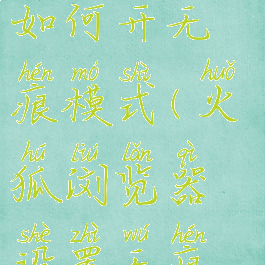 如何开无
hén mó shì huǒ
痕模式(火
hú liú lǎn qì
狐浏览器
shè zhì wú hén
设置无痕